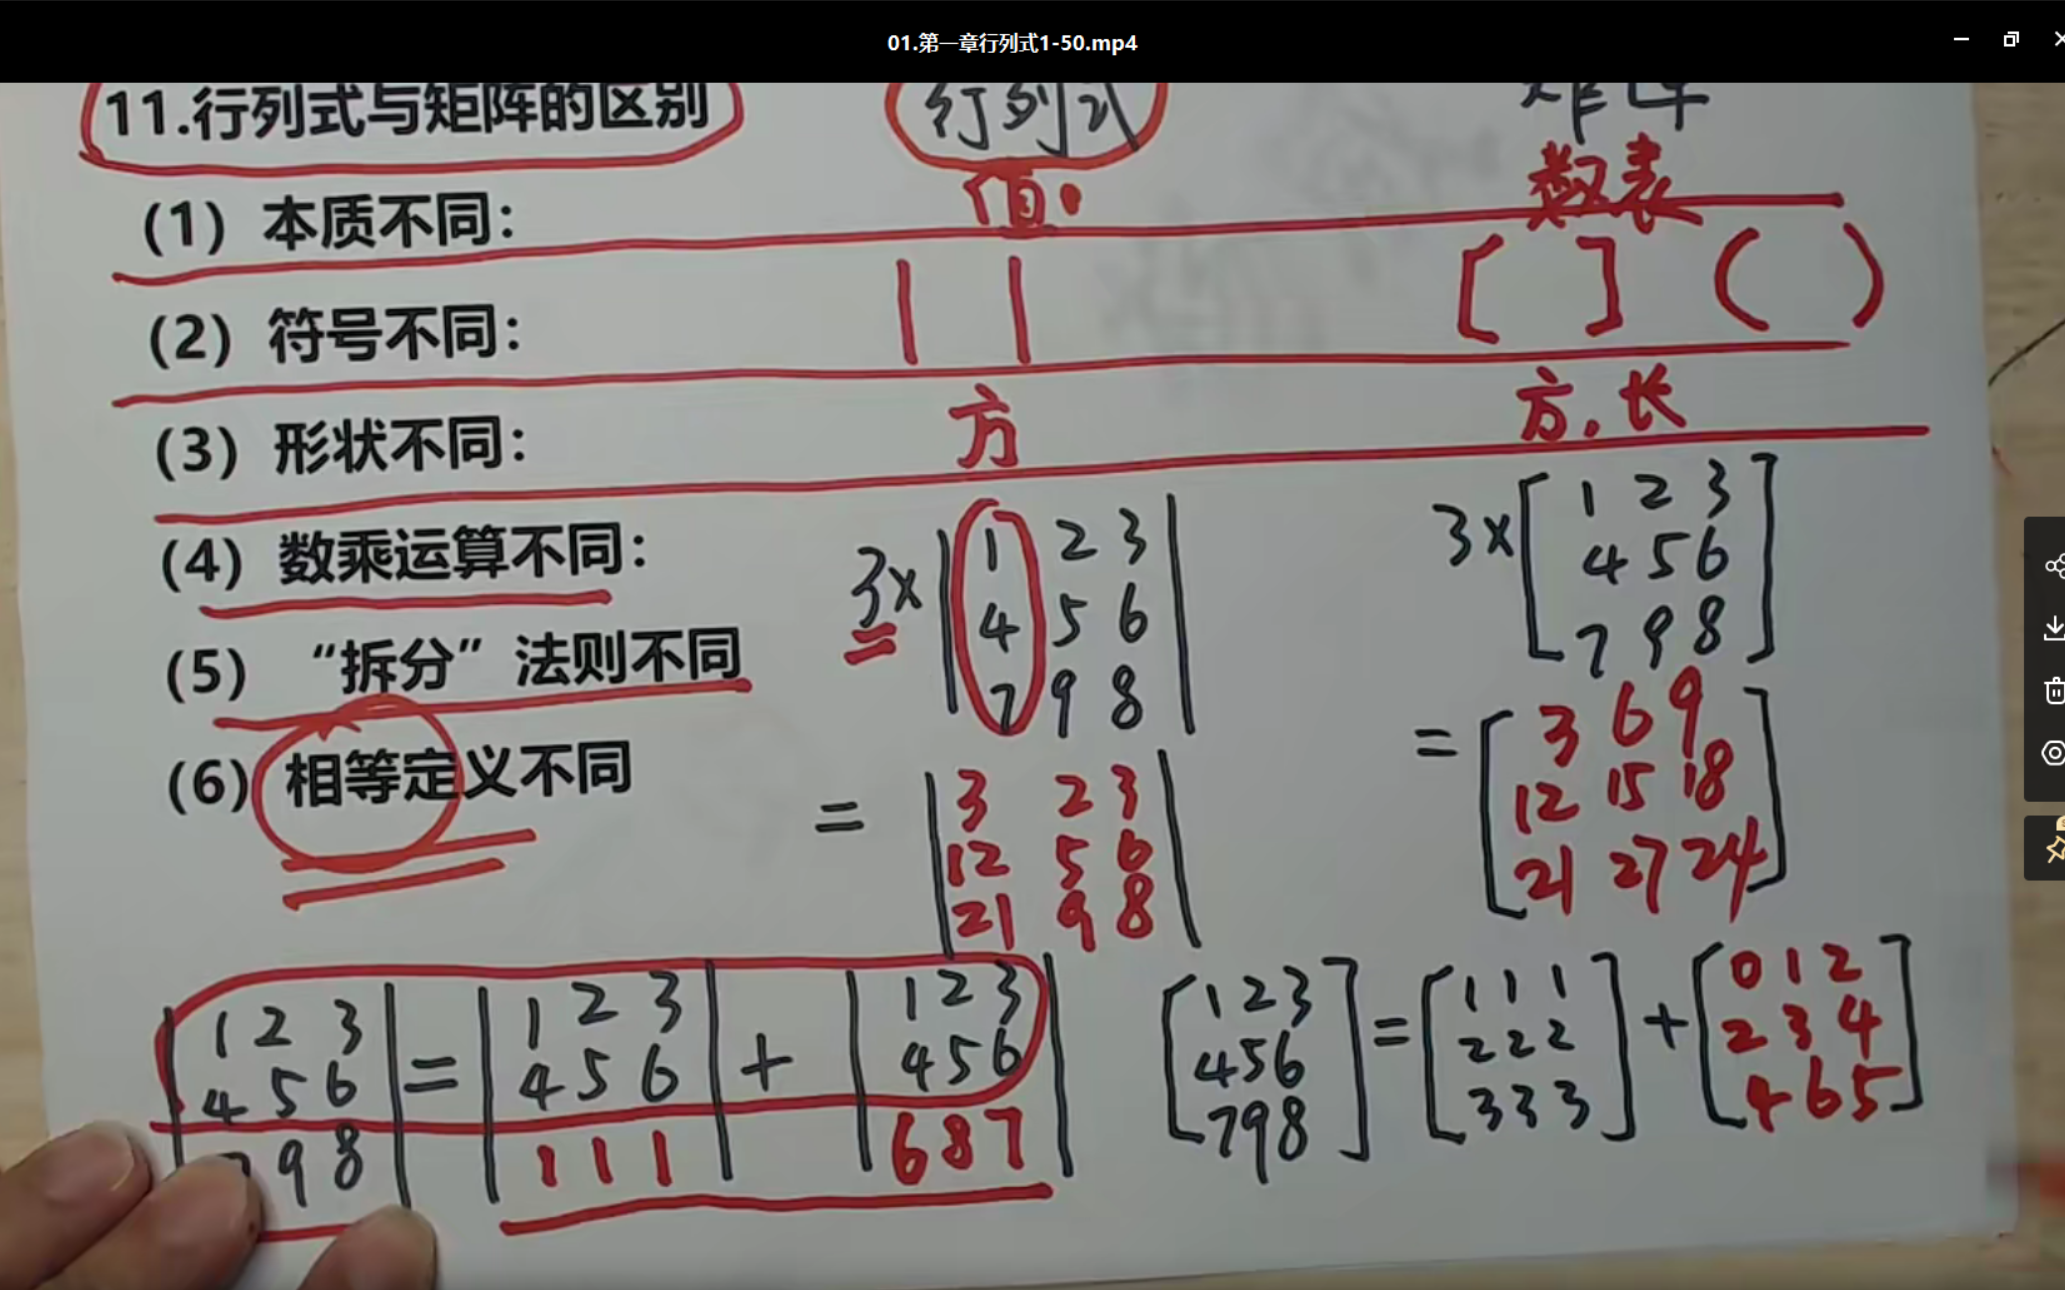 01.第一章行列式1-50.mp4
11.行列式与矩阵的区别 行列式 矩阵
(1) 本质不同： 值. 数表
(2) 符号不同： | | [ ] ( )
(3) 形状不同： 方 方, 长
(4) 数乘运算不同：
(5) “拆分”法则不同
(6) 相等定义不同
3×
1 2 3
4 5 6
7 9 8
=
3 2 3
12 5 6
21 9 8
3×
1 2 3
4 5 6
7 9 8
=
3 6 9
12 15 18
21 27 24
1 2 3 1 2 3 1 2 3
4 5 6 = 4 5 6 + 4 5 6
7 9 8 1 1 1 6 8 7
1 2 3 1 1 1 0 1 2
4 5 6 = 2 2 2 + 2 3 4
7 9 8 3 3 3 4 6 5